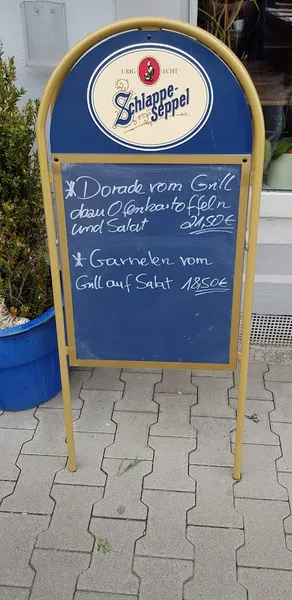 URIG ECHT
Schlappe-
Seppel
* Dorade vom Grill
dazu Ofenkartoffeln
und Salat 21,50€
* Garnelen vom
Grill auf Salat 18,50€